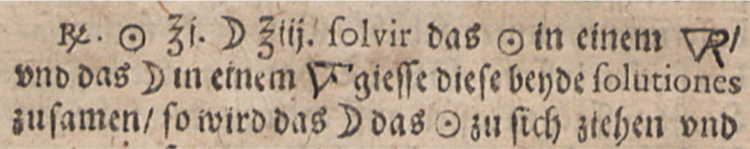 ℞. ☉ ℥i. ☽ ℥iij. ſolvir das ☉ in einem 🜆/
vnd das ☽ in einem 🜅 gieſſe dieſe beyde ſolutiones
zuſamen/ ſo wird das ☽ das ☉ zu ſich ziehen vnd